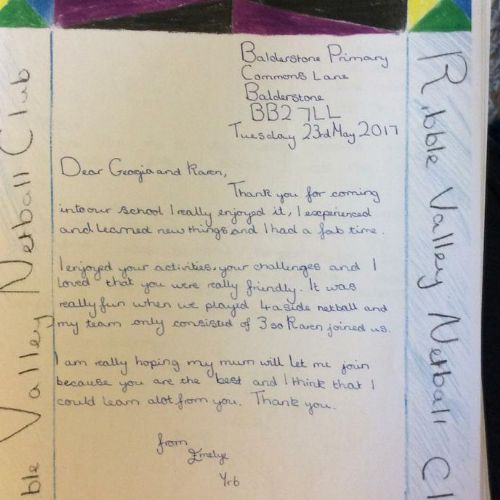 Balderstone Primary
Commons Lane
Balderstone
BB2 7LL
Tuesday 23rd May 2017
Dear Georgia and Karen,
Thank you for coming
into our school I really enjoyed it, I experienced
and learned new things and I had a fab time.
I enjoyed your activities, your challenges and I
loved that you were really friendly. It was
really fun when we played 4 aside netball and
my team only consisted of 3 so Karen joined us.
I am really hoping my mum will let me join
because you are the best and I think that I
could learn alot from you. Thank you.
from
Emelye
Yr6
Ribble Valley Netball C
ble Valley Netball Club